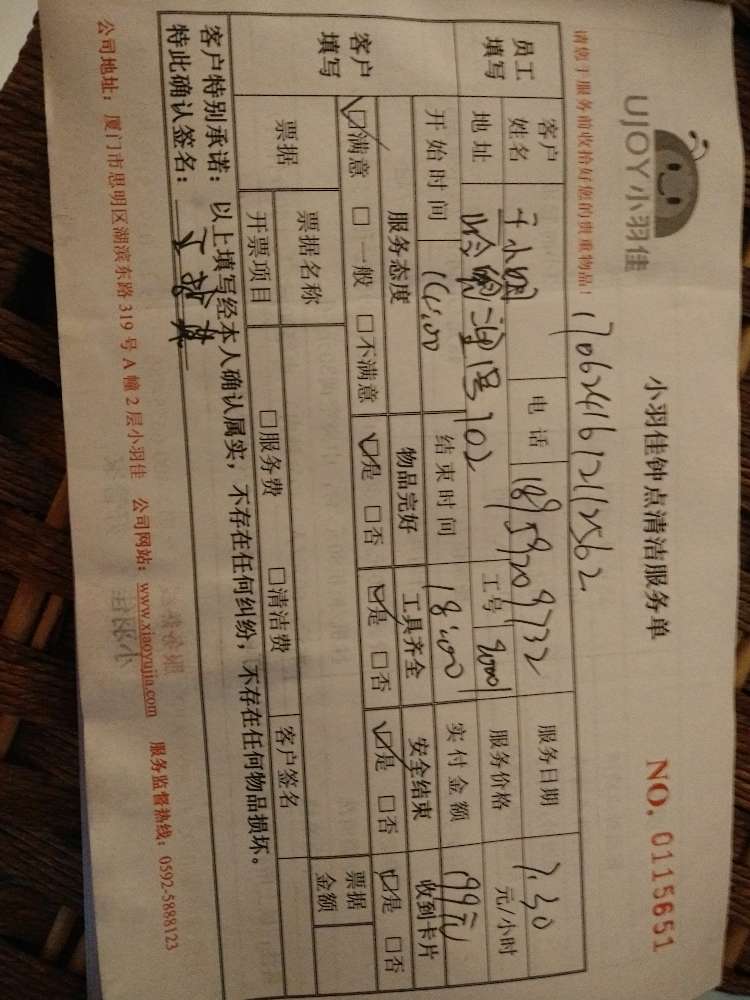 UJOY小羽佳
小羽佳钟点清洁服务单
NO. 0115651
请您于服务前收拾好您的贵重物品！
员工填写 客户姓名 电话 服务日期 7.30
地址 702 工号 9000 服务价格 元/小时
开始时间 14:00 结束时间 18:00 实付金额 199元
客户填写 服务态度 物品完好 工具齐全 安全结束 收到卡片
☑满意 □一般 □不满意 ☑是 □否 ☑是 □否 ☑是 □否 ☑是 □否
票据 票据名称 客户签名 票据金额
开票项目 □服务费 □清洁费
客户特别承诺：以上填写经本人确认属实，不存在任何纠纷，不存在任何物品损坏。
特此确认签名：
公司地址：厦门市思明区湖滨东路 319 号 A 幢 2 层小羽佳 公司网站：www.xiaoyujia.com 服务监督热线：0592-5888123